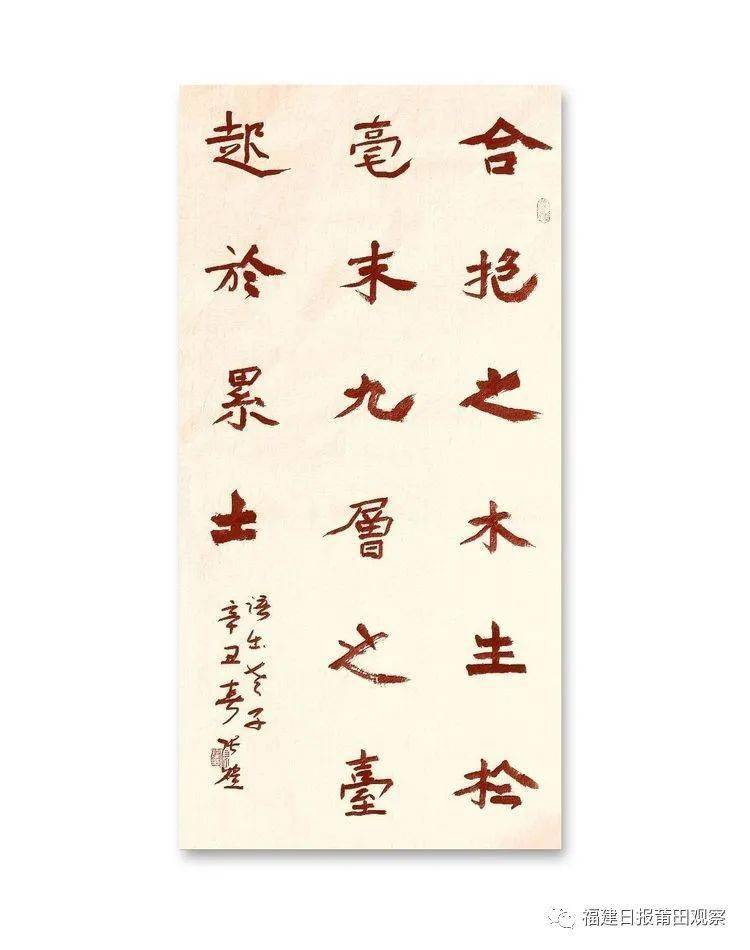 合抱之木生於
毫末九層之臺
起於累土
语出老子
辛丑春
福建日报莆田观察